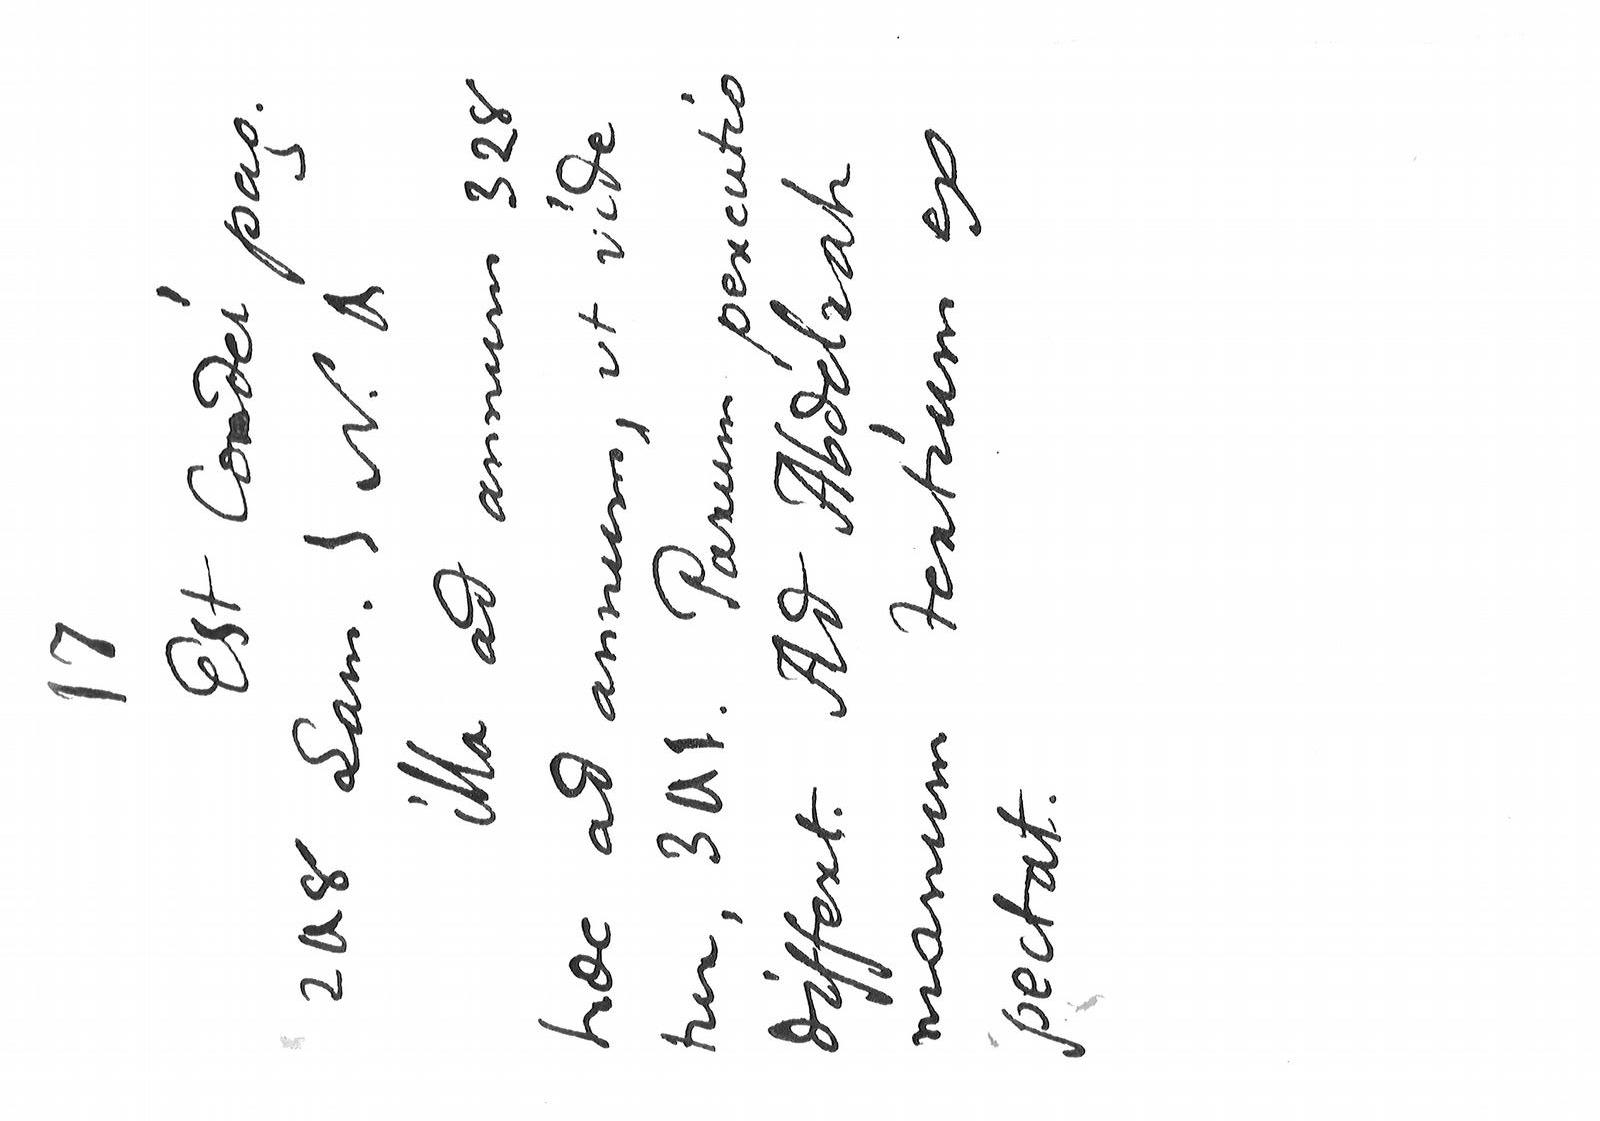 17
Est Condei pag.
248 Lam. J N. 4
illa ad annum 328
hoc ad annum, ut vide
tur, 341. Parum percutio
differt. Ad Abdelrah
manum tertium ex
pectat.